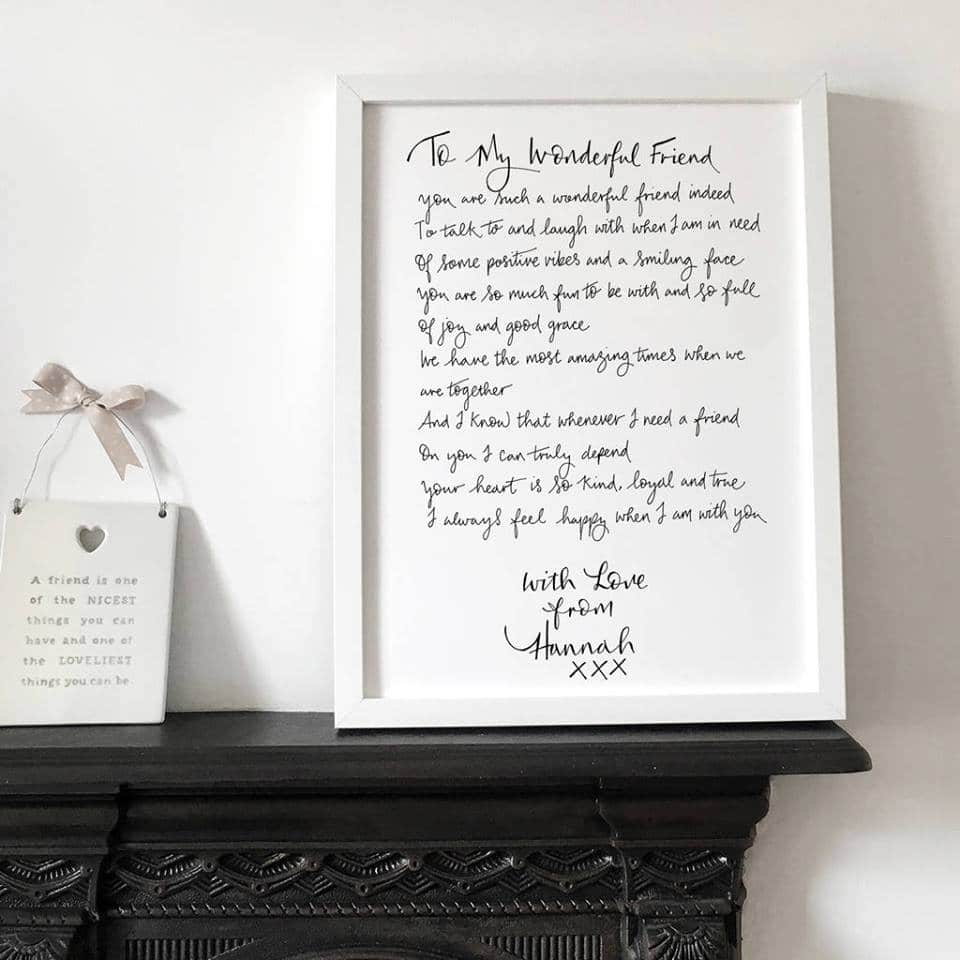 To My Wonderful Friend
you are such a wonderful friend indeed
To talk to and laugh with when I am in need
Of some positive vibes and a smiling face
You are so much fun to be with and so full
of joy and good grace
We have the most amazing times when we
are together
And I know that whenever I need a friend
On you I can truly depend
Your heart is so kind, loyal and true
I always feel happy when I am with you
with Love
from
Hannah
xxx
A friend is one
of the NICEST
things you can
have and one of
the LOVELIEST
things you can be.